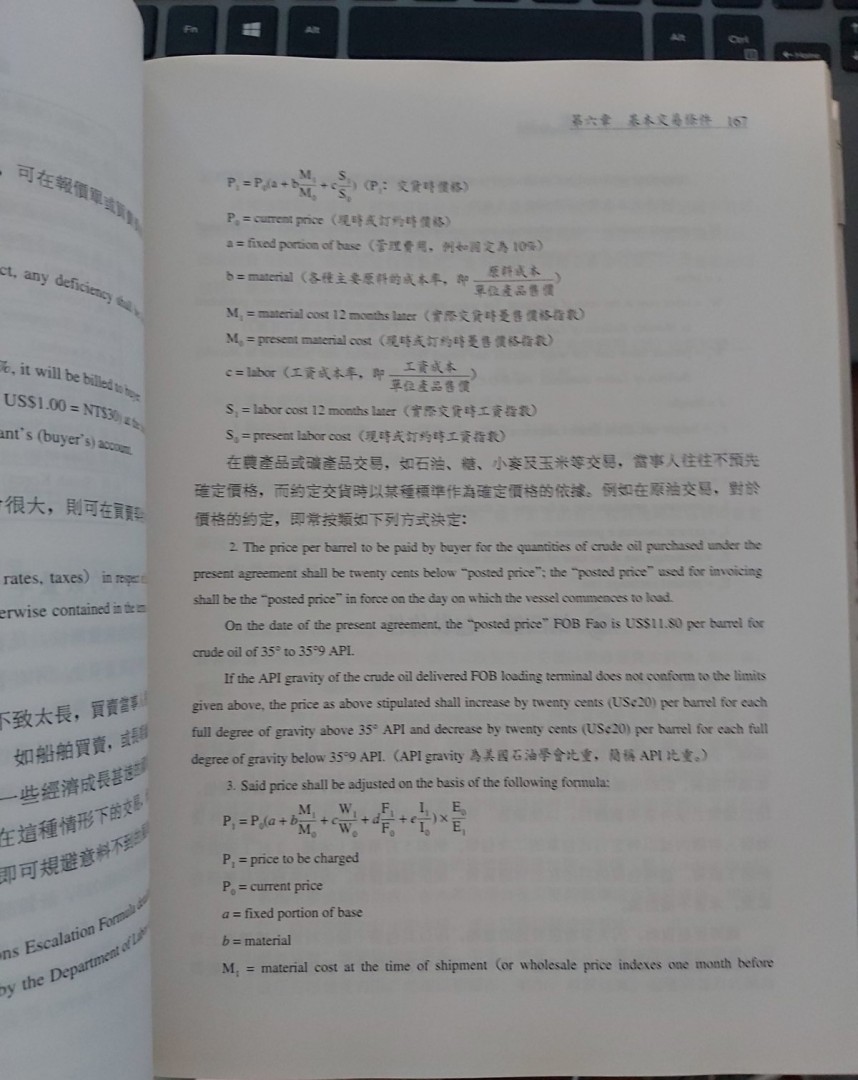 Fn
Alt
Alt
Ctrl
，可在報價單或買賣
ct, any deficiency shall be
%, it will be billed to buyer
US$1.00 = NT$30) at the
ant's (buyer's) account.
很大，則可在買賣契
rates, taxes) in respect
erwise contained in the
不致太長，買賣當事人
如船舶買賣，或長期
一些經濟成長甚速的
在這種情形下的交易，
即可規避意料不到的
ns Escalation Formula
by the Department of Labor
第六章 基本交易條件 167
P₁ = P₀(a + b M₁/M₀ + c S₁/S₀) (P₁：交貨時價格)
P₀ = current price (現時或訂約時價格)
a = fixed portion of base (管理費用，例如固定為 10%)
b = material (各種主要原料的成本率，即 原料成本/單位產品售價)
M₁ = material cost 12 months later (實際交貨時躉售價格指數)
M₀ = present material cost (現時或訂約時躉售價格指數)
c = labor (工資成本率，即 工資成本/單位產品售價)
S₁ = labor cost 12 months later (實際交貨時工資指數)
S₀ = present labor cost (現時或訂約時工資指數)
在農產品或礦產品交易，如石油、糖、小麥及玉米等交易，當事人往往不預先
確定價格，而約定交貨時以某種標準作為確定價格的依據。例如在原油交易，對於
價格的約定，即常按類如下列方式決定：
2. The price per barrel to be paid by buyer for the quantities of crude oil purchased under the
present agreement shall be twenty cents below “posted price”; the “posted price” used for invoicing
shall be the “posted price” in force on the day on which the vessel commences to load.
On the date of the present agreement, the “posted price” FOB Fao is US$11.80 per barrel for
crude oil of 35° to 35°9 API.
If the API gravity of the crude oil delivered FOB loading terminal does not conform to the limits
given above, the price as above stipulated shall increase by twenty cents (US¢20) per barrel for each
full degree of gravity above 35° API and decrease by twenty cents (US¢20) per barrel for each full
degree of gravity below 35°9 API. (API gravity 為美國石油學會比重，簡稱 API 比重。)
3. Said price shall be adjusted on the basis of the following formula:
P₁ = P₀(a + b M₁/M₀ + c W₁/W₀ + d F₁/F₀ + e I₁/I₀) × E₀/E₁
P₁ = price to be charged
P₀ = current price
a = fixed portion of base
b = material
M₁ = material cost at the time of shipment (or wholesale price indexes one month before